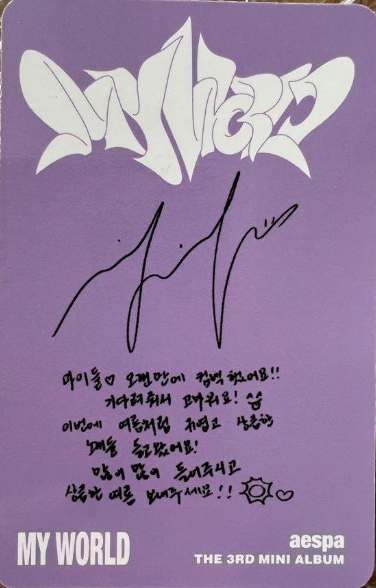 MY WORLD
마이들♡ 오랜만에 컴백 했어요!!
기다려줘서 고마워요! ^^
이번에 여름처럼 귀엽고 상큼한
노래들 들고 왔어요!
많이 많이 들어주시고
상큼한 여름 보내주세요!! ♡
MY WORLD
aespa
THE 3RD MINI ALBUM